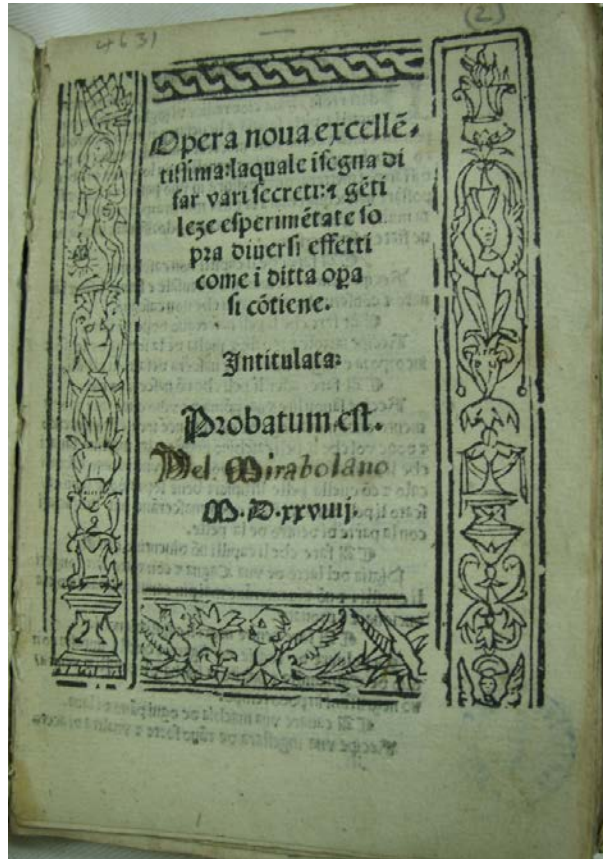 4631
(2)
Opera noua excellē⸗
tissima: laquale īsegna di
far vari secreti: ⁊ gēti
leze esperimētate so
pra diuersi effetti
come ī ditta opa
si cōtiene.
Intitulata:
Probatum est.
Del Mirabolano
M.D.xxviiij.